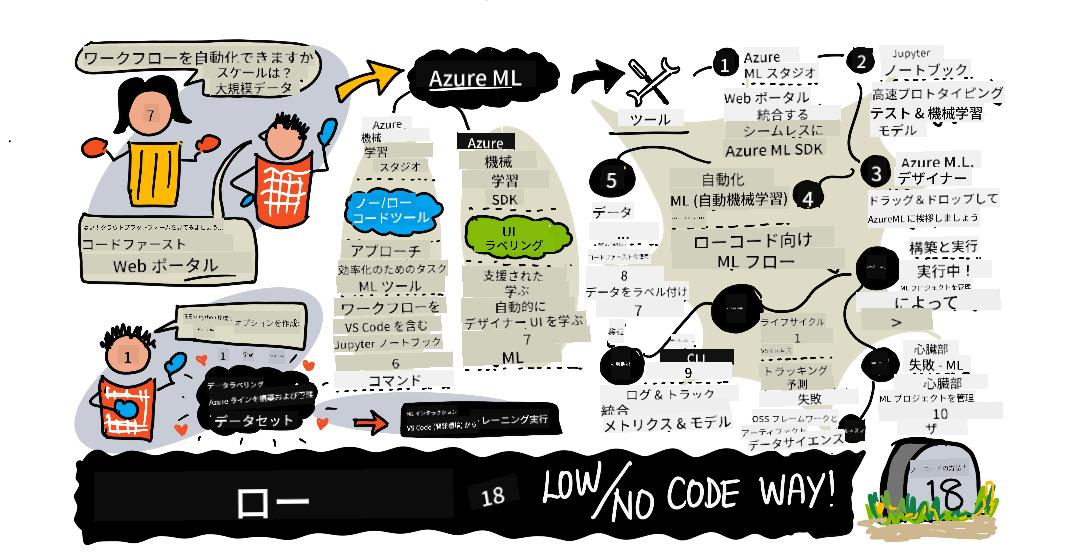 ワークフローを自動化できますか
スケールは？
大規模データ
7
コードファースト
Web ポータル
Azure ML
Azure
機械
学習
スタジオ
ノー/ロー
コードツール
アプローチ
効率化のためのタスク
ML ツール
ワークフローを
VS Code を含む
Jupyter ノートブック
6
コマンド
Azure
機械
学習
SDK
UI
ラベリング
支援された
学ぶ
自動的に
デザイナー UI を学ぶ
7
ML
ツール
1
Azure
ML スタジオ
Web ポータル
統合する
シームレスに
Azure ML SDK
2
Jupyter
ノートブック
高速プロトタイピング
テスト & 機械学習
モデル
3
Azure M.L.
デザイナー
ドラッグ＆ドロップして
AzureML に挨拶しましょう
自動化
ML (自動機械学習)
4
ローコード向け
ML フロー
5
データ
...
8
データをラベル付け
7
構築と実行
実行中！
ML プロジェクトを管理
によって
>
ライフサイクル
1
トラッキング
予測
失敗
CLI
9
ログ & トラック
統合
メトリクス & モデル
OSS フレームワークと
アーティファクト
データサイエンス
心臓部
失敗 - ML
心臓部
ML プロジェクトを管理
10
ザ
1
オプションを作成:
1
データラベリング
Azure ラインを構築および管理
データセット
ML インタラクション
VS Code (開発環境) から
レーニング実行
ロー
18
LOW/NO CODE WAY!
ノーコードの方法！
18